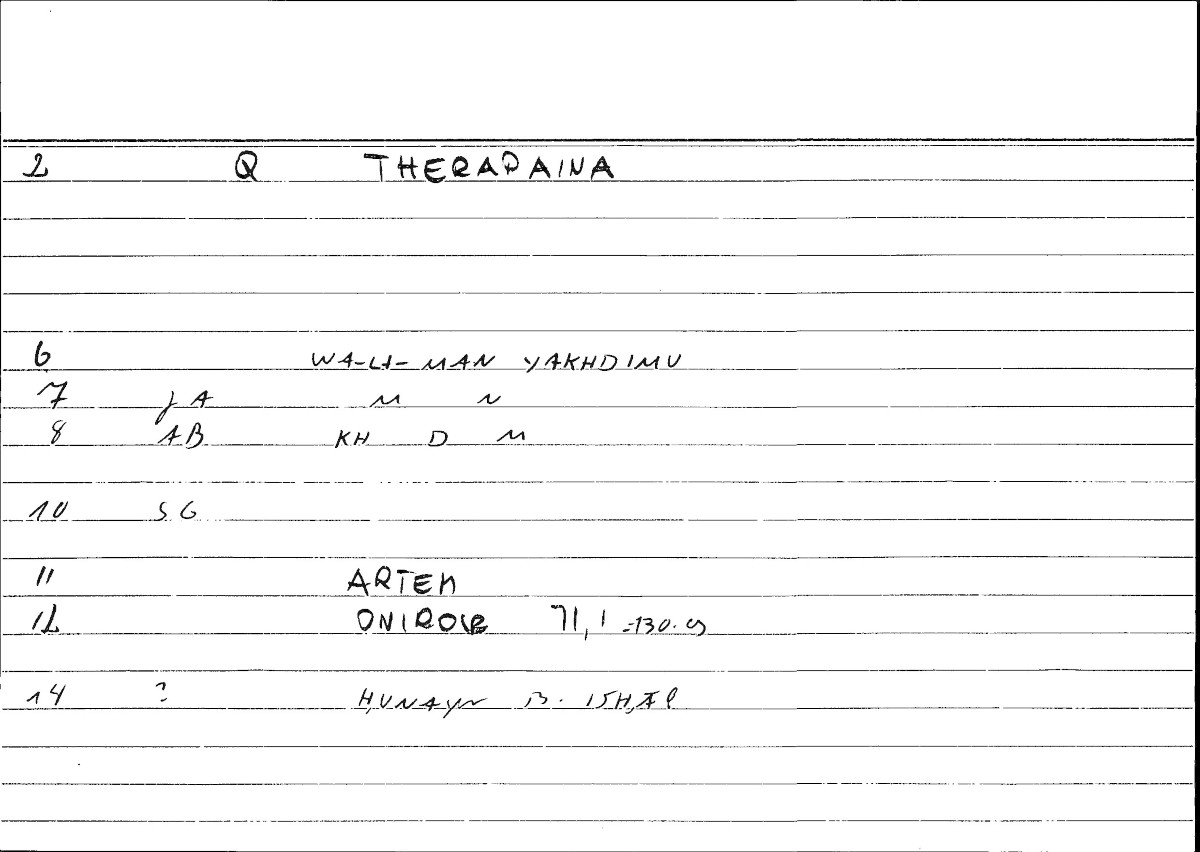 2 Q THERAPAINA
6 WA-LI-MAN YAKHDIMU
7 JA M N
8 AB KH D M
10 SG
11 ARTEM
12 ONIROCR 71,1 =130.
14 ? H,UNAYN B. ISH,AQ